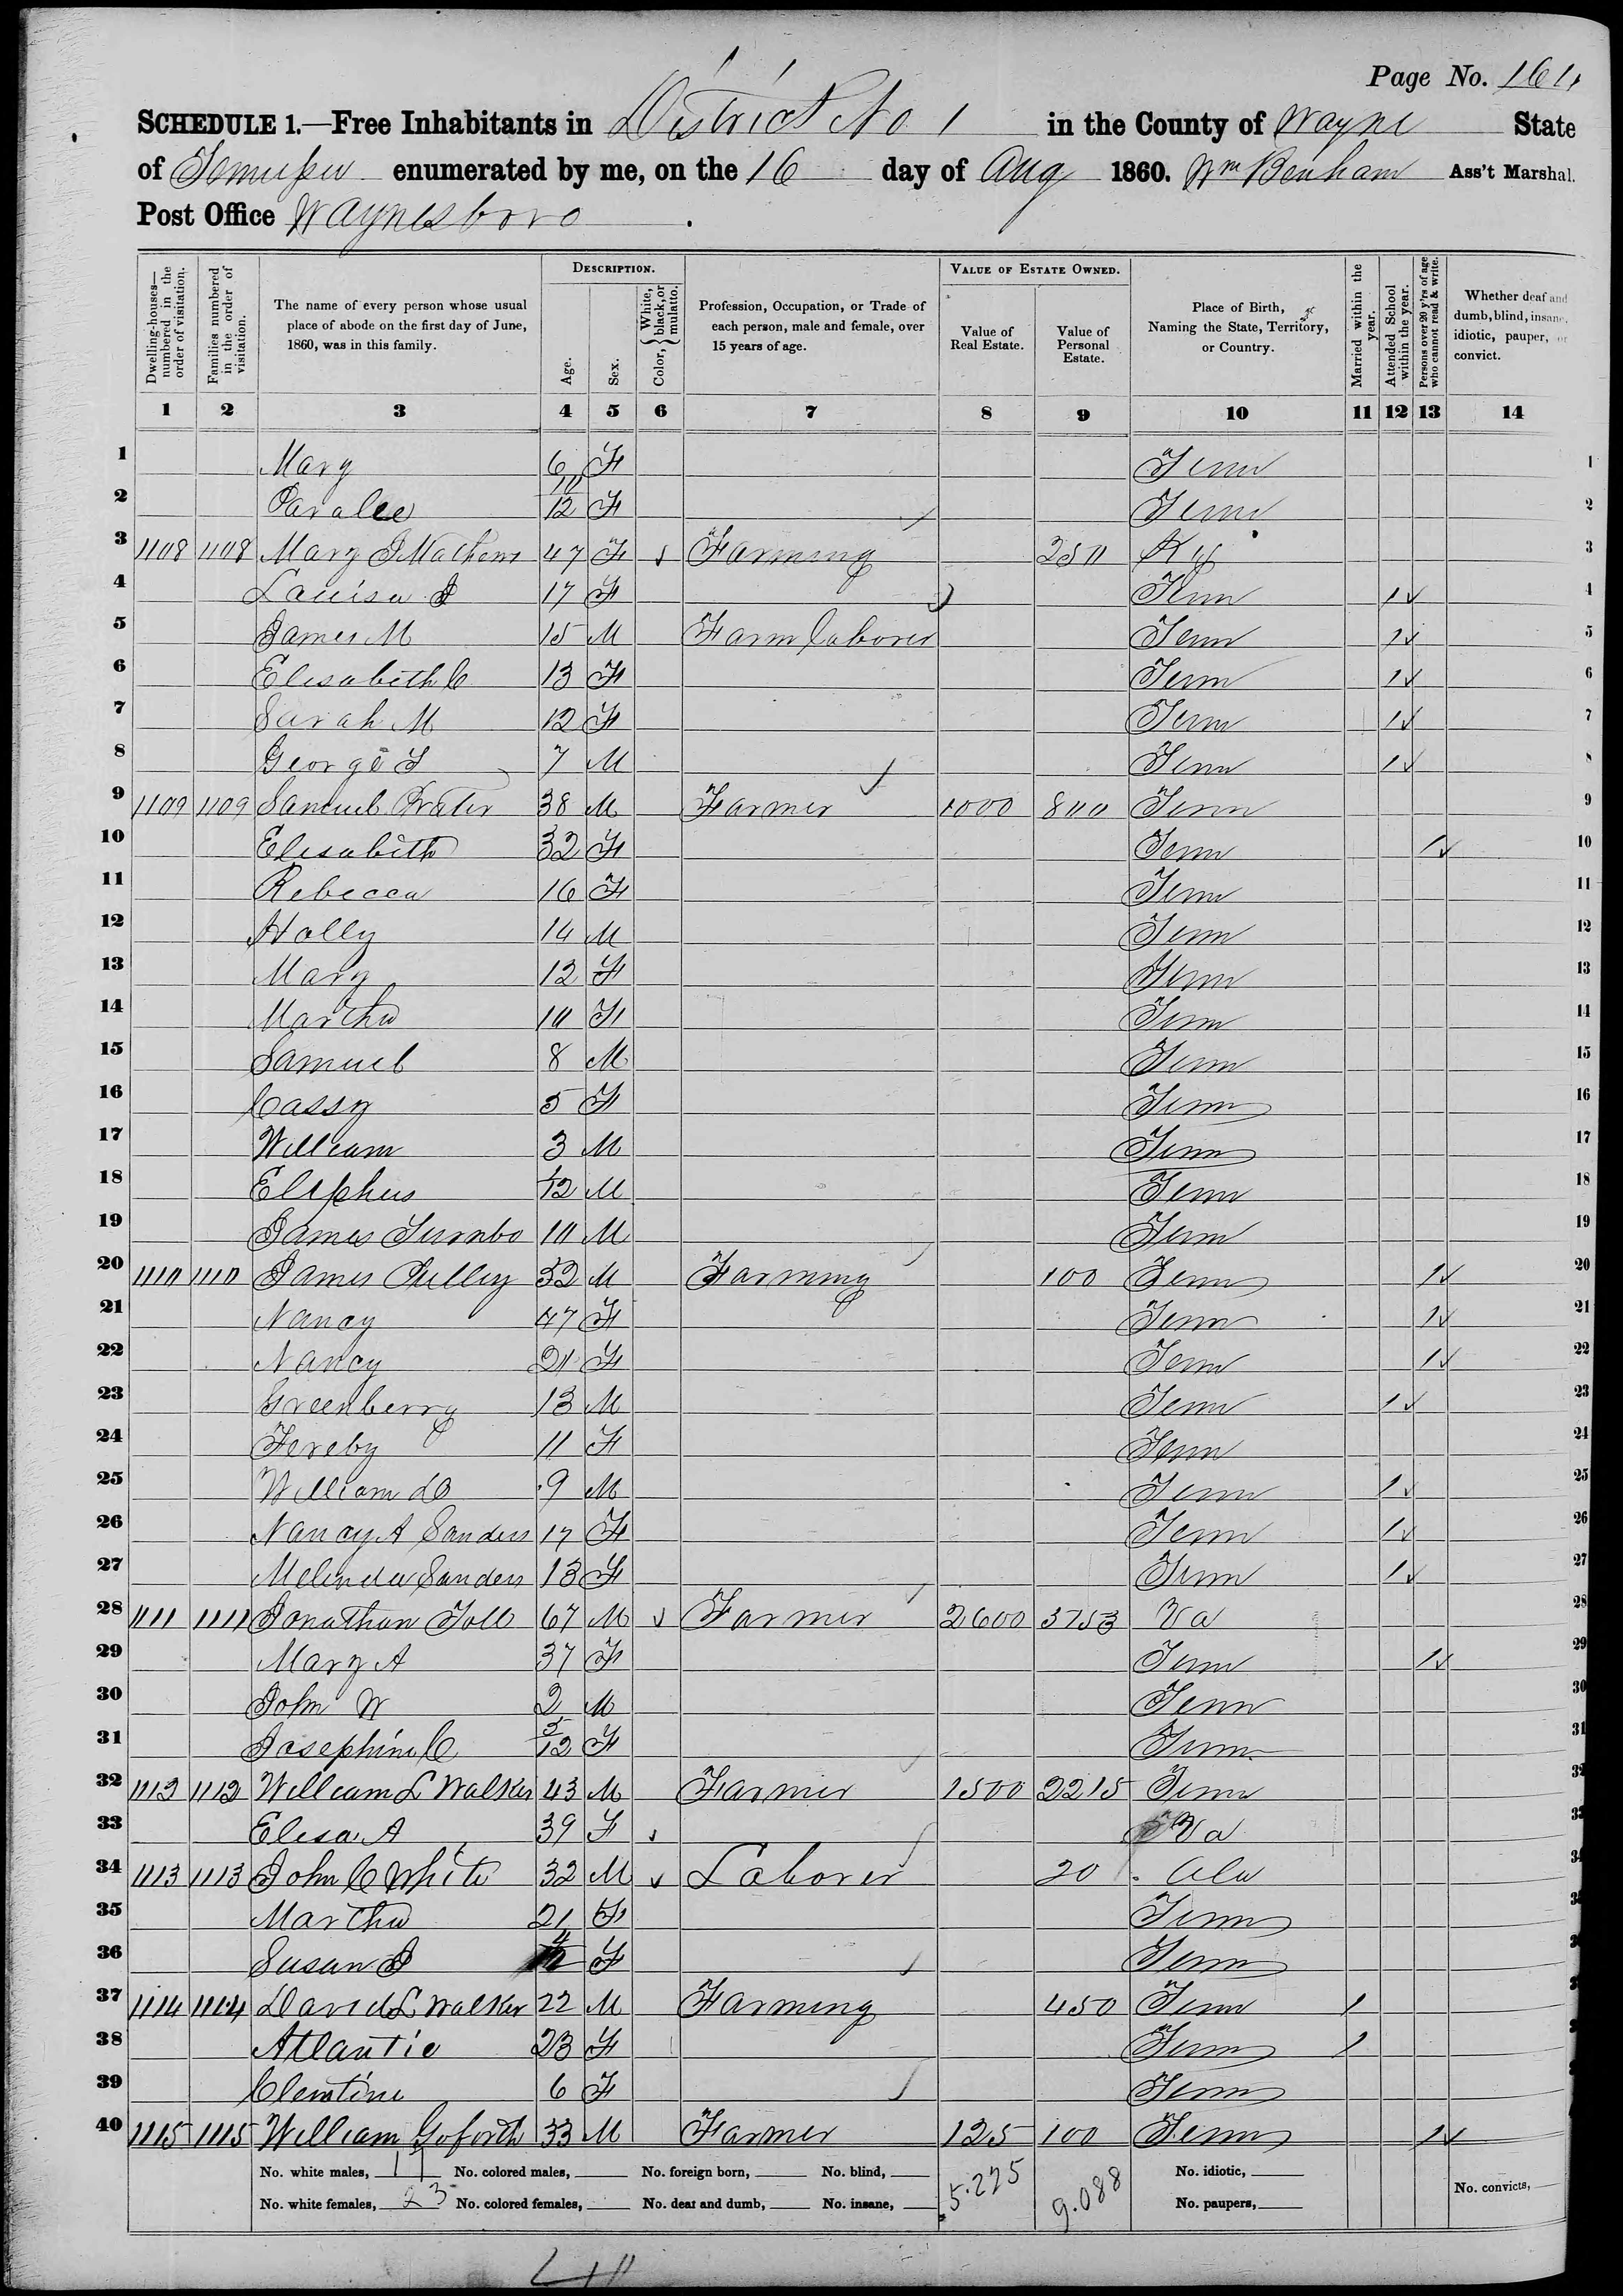 Page No. 161
SCHEDULE 1.—Free Inhabitants in District No 1 in the County of Wayne State
of Tennessee enumerated by me, on the 16 day of Aug 1860. Wm Benham Ass't Marshal.
Post Office Waynesboro.
Dwelling-houses—numbered in the order of visitation. Families numbered in the order of visitation. The name of every person whose usual place of abode on the first day of June, 1860, was in this family. DESCRIPTION. Age. Sex. Color, { White, black, or mulatto. Profession, Occupation, or Trade of each person, male and female, over 15 years of age. VALUE OF ESTATE OWNED. Value of Real Estate. Value of Personal Estate. Place of Birth, Naming the State, Territory, or Country. Married within the year. Attended School within the year. Persons over 20 y'rs of age who cannot read & write. Whether deaf and dumb, blind, insane, idiotic, pauper, or convict.
1 2 3 4 5 6 7 8 9 10 11 12 13 14
1 Mary 6 F Tenn 1
2 Paralee 10/12 F Tenn 2
3 1108 1108 Mary J Mathews 47 F Farming 250 Ky 3
4 Louisa J 17 F Tenn 1 4
5 James M 15 M Farm laborer Tenn 1 5
6 Elisabeth C 13 F Tenn 1 6
7 Sarah M 12 F Tenn 1 7
8 George T 7 M Tenn 1 8
9 1109 1109 Samuel Prater 38 M Farmer 1000 800 Tenn 9
10 Elisabeth 32 F Tenn 1 10
11 Rebecca 16 F Tenn 11
12 Holly 14 M Tenn 12
13 Mary 12 F Tenn 13
14 Martha 10 F Tenn 14
15 Samuel 8 M Tenn 15
16 Cassy 5 F Tenn 16
17 William 3 M Tenn 17
18 Elephus 1/12 M Tenn 18
19 James Turnbo 10 M Tenn 19
20 1110 1110 James Pulley 52 M Farming 100 Tenn 1 20
21 Nancy 47 F Tenn 1 21
22 Nancy 21 F Tenn 1 22
23 Greenberry 13 M Tenn 1 23
24 Fereby 11 F Tenn 24
25 William D 9 M Tenn 1 25
26 Nancy A Sanders 17 F Tenn 1 26
27 Melinda Sanders 13 F Tenn 1 27
28 1111 1111 Jonathan Toll 67 M Farmer 2600 3753 Va 28
29 Mary A 37 F Tenn 1 29
30 John W 2 M Tenn 30
31 Josephine C 5/12 F Tenn 31
32 1112 1112 William L Walker 43 M Farmer 1500 2215 Tenn 32
33 Elisa A 39 F Va 33
34 1113 1113 John C White 32 M Laborer 20 Ala 34
35 Martha 21 F Tenn
36 Susan J F Tenn
37 1114 1114 David L Walker 22 M Farming 450 Tenn 1
38 Atlantic 23 F Tenn 1
39 Clemtine 6 F Tenn
40 1115 1115 William Goforth 33 M Farmer 125 100 Tenn 1
No. white males, 17 No. colored males, No. foreign born, No. blind, 5.225 9.088 No. idiotic,
No. white females, 23 No. colored females, No. deaf and dumb, No. insane, No. paupers, No. convicts,
40